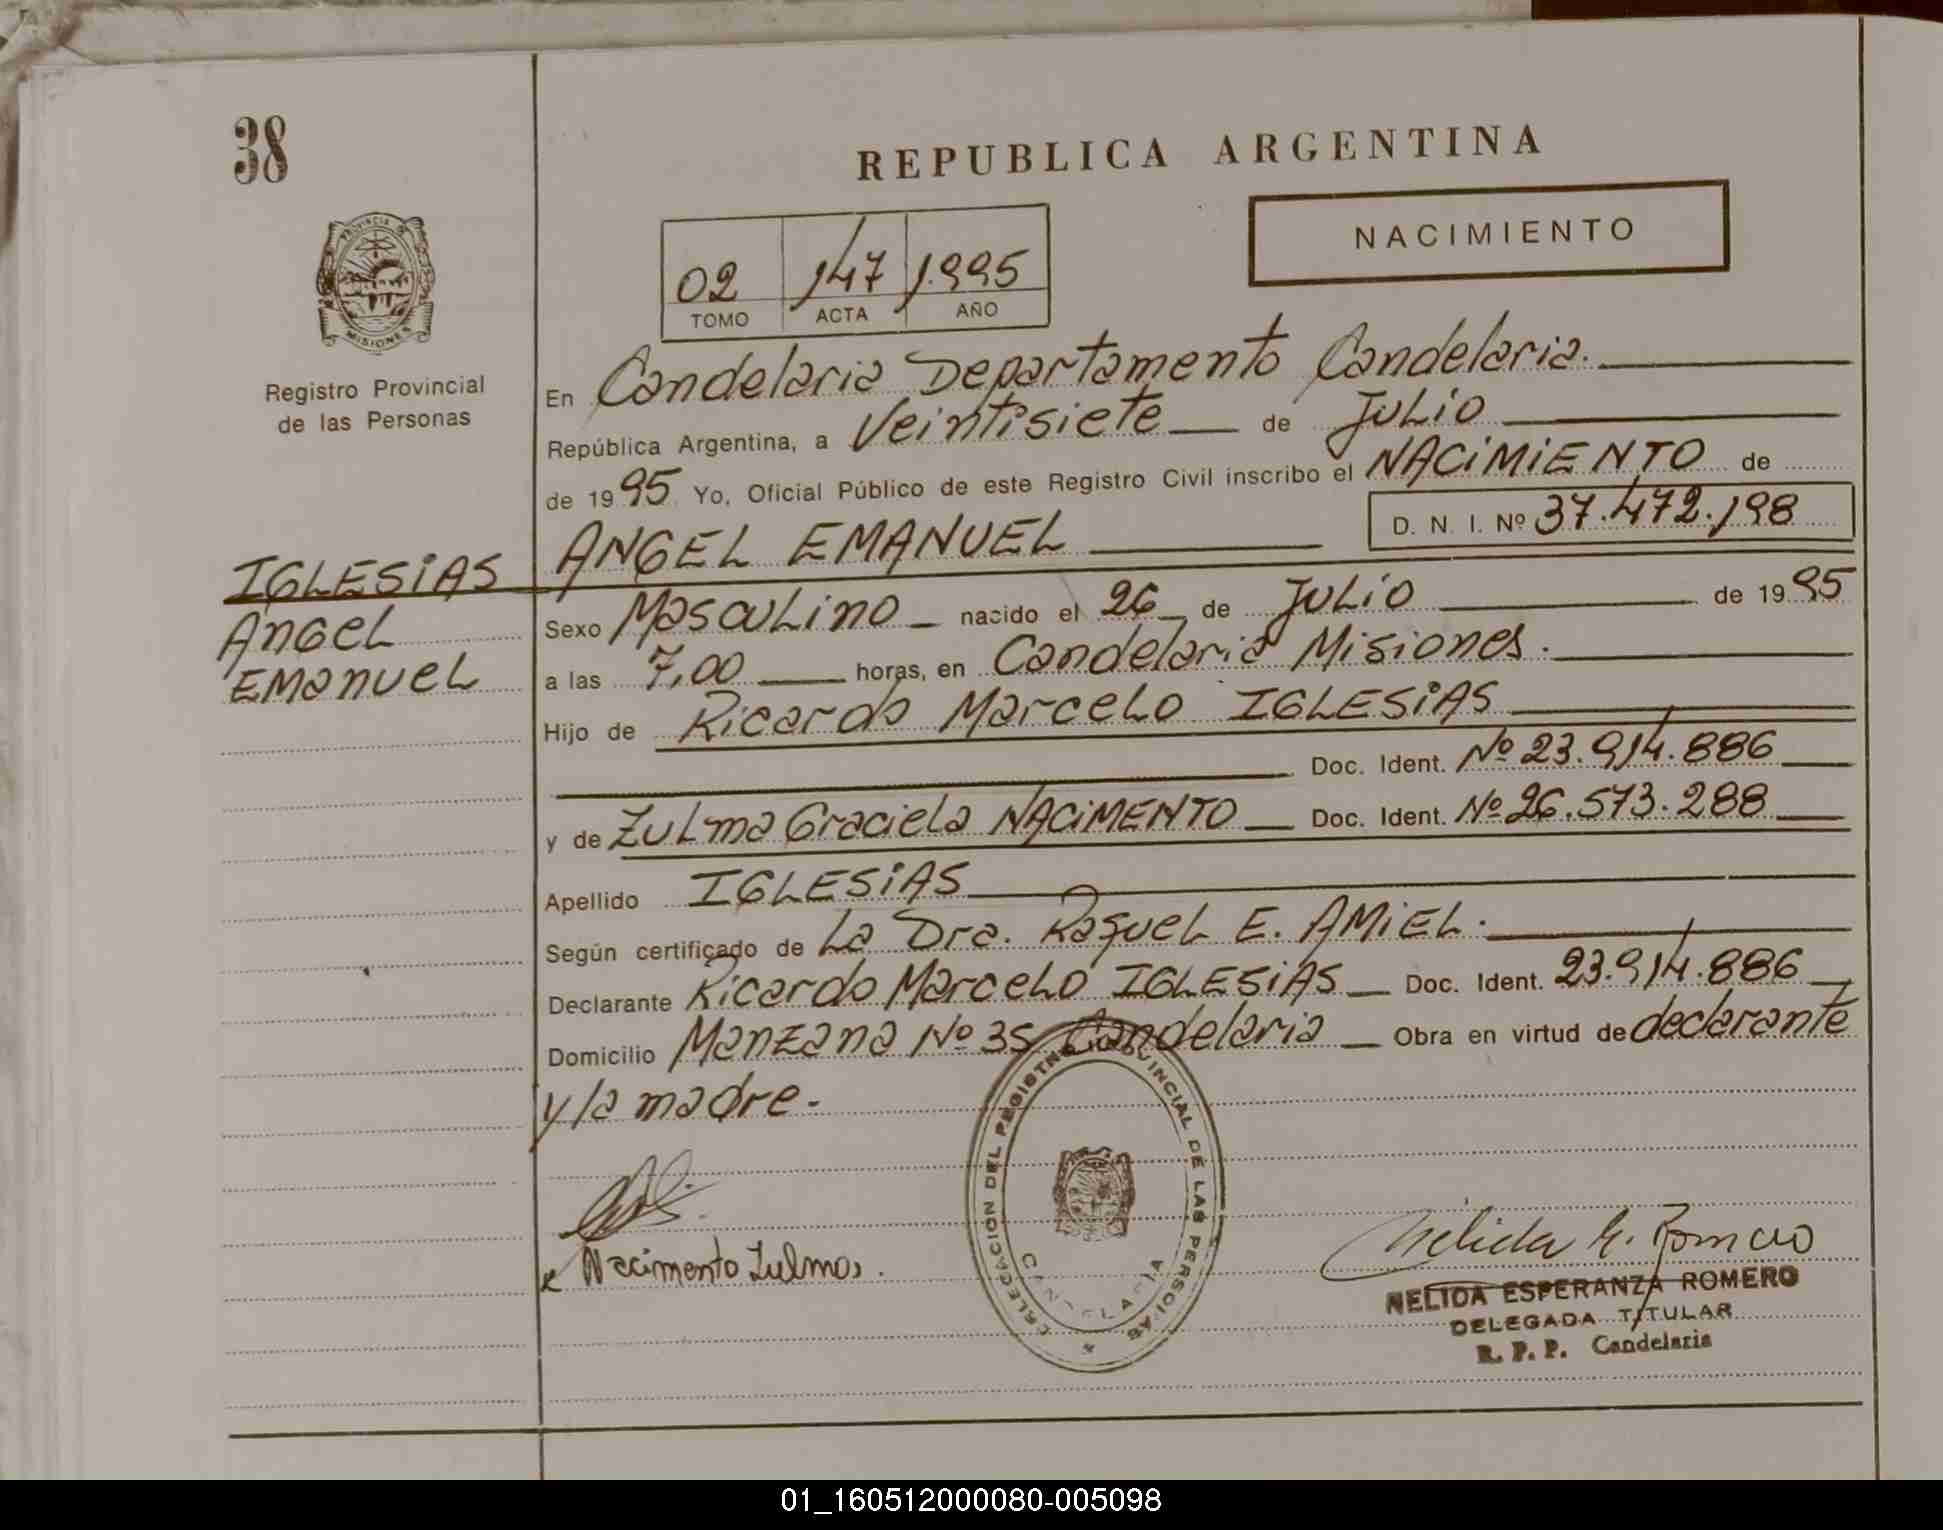 38
REPUBLICA ARGENTINA
NACIMIENTO
02 147 1.995
TOMO ACTA AÑO
PROVINCIA DE
MISIONES
Registro Provincial
de las Personas
En Candelaria Departamento Candelaria.
República Argentina, a Veintisiete de Julio
de 1995 Yo, Oficial Público de este Registro Civil inscribo el NACIMIENTO de
D. N. I. Nº 37.472.198
ANGEL EMANUEL
IGLESIAS
Angel
Emanuel
Sexo Masculino nacido el 26 de Julio de 1995
a las 7,00 horas, en Candelaria Misiones.
Hijo de Ricardo Marcelo IGLESIAS
Doc. Ident. Nº 23.914.886
y de Zulma Graciela NACIMENTO Doc. Ident. Nº 26.573.288
Apellido IGLESIAS
Según certificado de La Dra. Raquel E. AMIEL.
Declarante Ricardo Marcelo IGLESIAS Doc. Ident. 23.914.886
Domicilio Manzana Nº 35 Candelaria Obra en virtud de declarante
y la madre.
DELEGACION DEL REGISTRO PROVINCIAL DE LAS PERSONAS
CANDELARIA
x Nacimento Zulma.
Nelida E. Romero
NELIDA ESPERANZA ROMERO
DELEGADA TITULAR
R. P. P. Candelaria
01_160512000080-005098